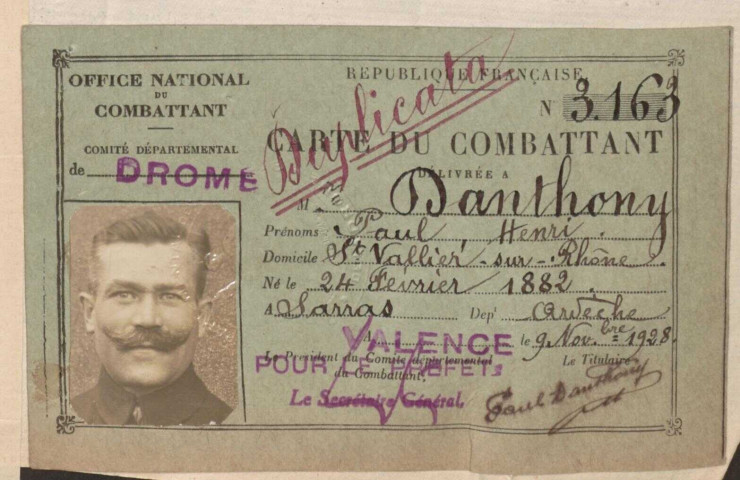 OFFICE NATIONAL
DU
COMBATTANT
COMITÉ DÉPARTEMENTAL
de DROME
RÉPUBLIQUE FRANÇAISE
N° 3.163
Duplicata
CARTE DU COMBATTANT
DÉLIVRÉE A
M Danthony
Prénoms : Paul, Henri.
Domicile St Vallier-sur-Rhône.
Né le 24 Février 1882.
A Sarras Dept Ardèche
A VALENCE le 9 Novbre 1928.
Le Président du Comité départemental
du Combattant,
Le Titulaire,
POUR LE PRÉFET,
Le Secrétaire Général,
Paul Danthony